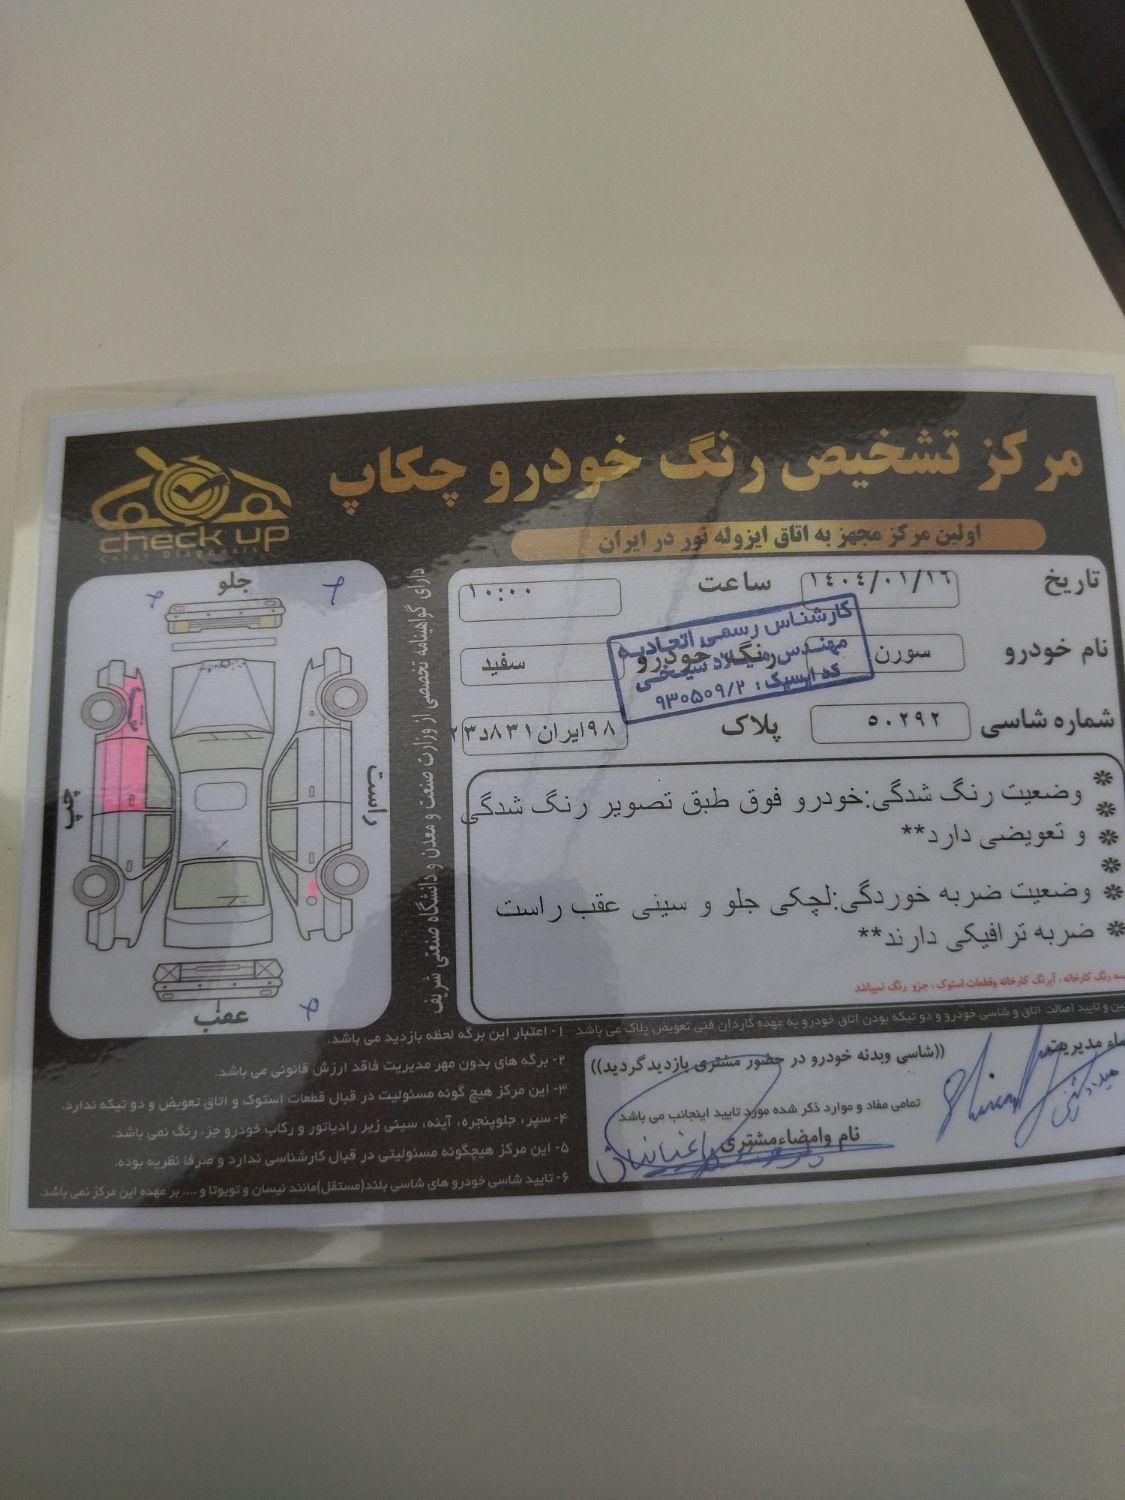 مرکز تشخیص رنگ خودرو چکاپ
check up
Color Diagnosis
اولین مرکز مجهز به اتاق ایزوله نور در ایران
تاریخ ۱۴۰۴/۰۱/۱۶ ساعت ۱۰:۰۰
نام خودرو سورن رنگ خودرو سفید
شماره شاسی ۵۰۲۹۲ پلاک ۹۸ایران۸۳۱د۲۳
کارشناس رسمی اتحادیه
مهندس میلاد شیخی
کد ایسیک: ۹۳۰۵۰۹/۲
وضعیت رنگ شدگی:خودرو فوق طبق تصویر رنگ شدگی
و تعویضی دارد**
وضعیت ضربه خوردگی:لچکی جلو و سینی عقب راست
ضربه ترافیکی دارند**
رنگ کارخانه ، آبرنگ کارخانه وقطعات استوک ، جزو رنگ نمیباشد
دارای گواهینامه تخصصی از وزارت صنعت و معدن و دانشگاه صنعتی شریف
جلو
چپ
راست
عقب
و تایید اصالت اتاق و شاسی خودرو و دو تیکه بودن اتاق خودرو به عهده کاردان فنی تعویض پلاک می باشد
۱- اعتبار این برگه لحظه بازدید می باشد.
۲- برگه های بدون مهر مدیریت فاقد ارزش قانونی می باشد.
۳- این مرکز هیچ گونه مسئولیت در قبال قطعات استوک و اتاق تعویض و دو تیکه ندارد.
۴- سپر، جلوپنجره، آینه، سینی زیر رادیاتور و رکاب خودرو جزء رنگ نمی باشد.
۵- این مرکز هیچگونه مسئولیتی در قبال کارشناسی ندارد و صرفا نظریه بوده.
۶- تایید شاسی خودرو های شاسی بلند(مستقل)مانند نیسان و تویوتا و .... بر عهده این مرکز نمی باشد.
((شاسی وبدنه خودرو در حضور مشتری بازدید گردید))
تمامی مفاد و موارد ذکر شده مورد تایید اینجانب می باشد
نام وامضاءمشتری
مدیریت